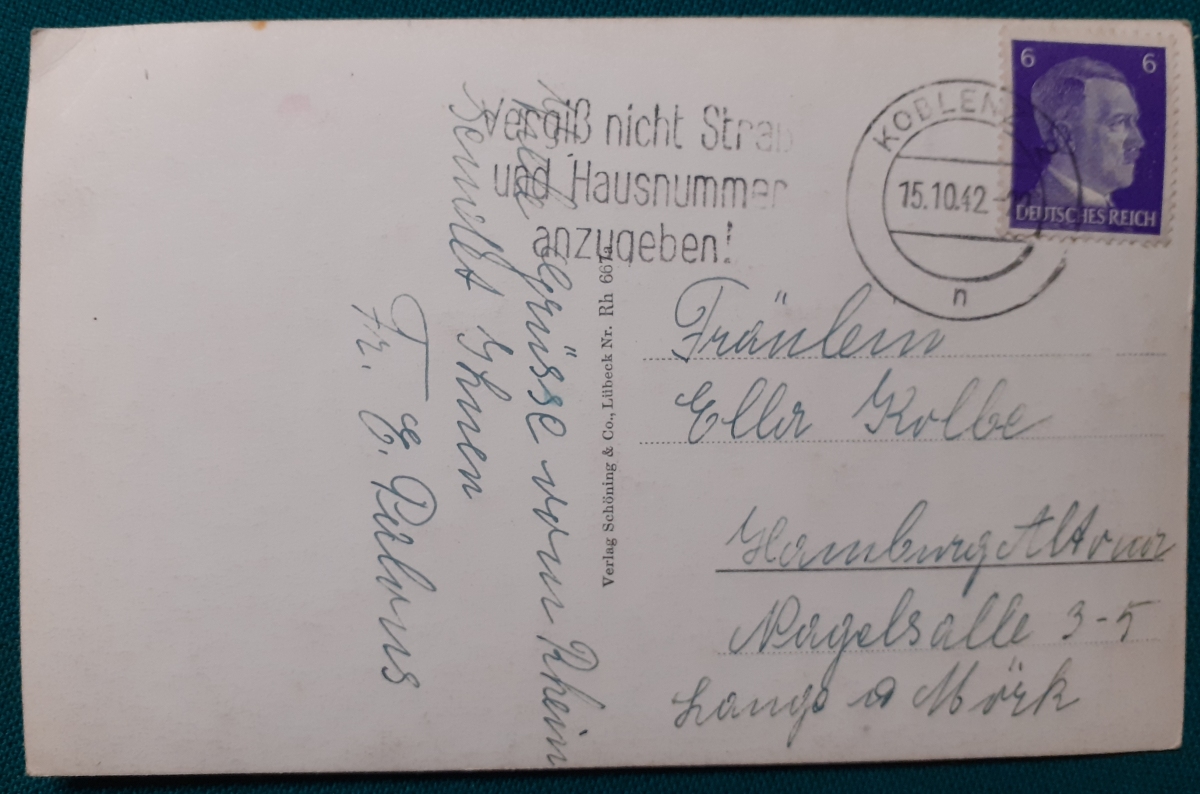 6 6
DEUTSCHES REICH
KOBLENZ
15.10.42
n
Vergiß nicht Straß
und Hausnummer
anzugeben!
Viele Grüsse vom Rhein
sendet Ihnen
Fr. E.
Verlag Schöning & Co., Lübeck Nr. Rh 667a
Fräulein
Ella Kolbe
Hamburg Altona
Nagelsalle 3-5
Lange a Mörk